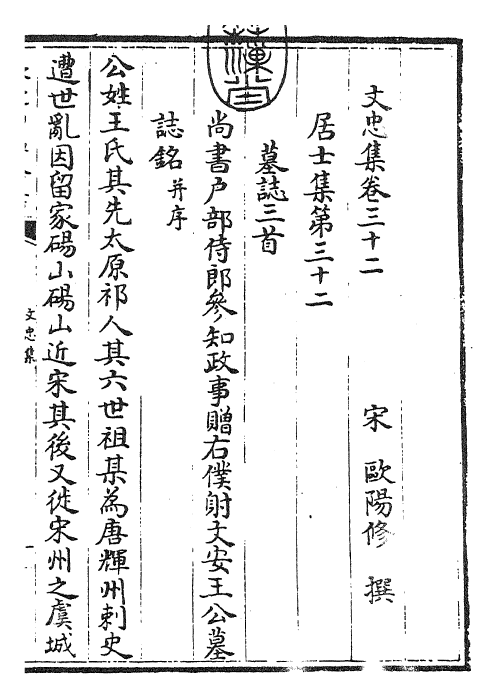 文忠集卷三十二
宋 歐陽修 撰
居士集第三十二
墓誌三首
尚書戸部侍郎參知政事贈右僕射文安王公墓
誌銘并序
公姓王氏其先太原祁人其六世祖某為唐輝州刺史
遭世亂因留家碭山碭山近宋其後又徙宋州之虞城
文忠集